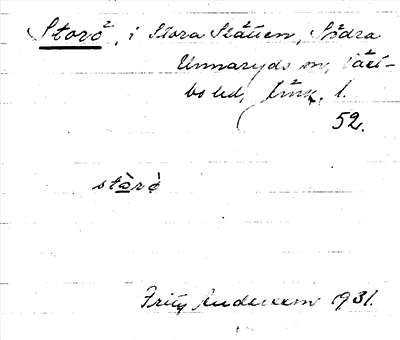 Storö, i Stora Slätten, Södra
Unnaryds sn, Väst-
bo hd, Jönk. l.
52.
stòrö̀
Fritz Andersson 1931.